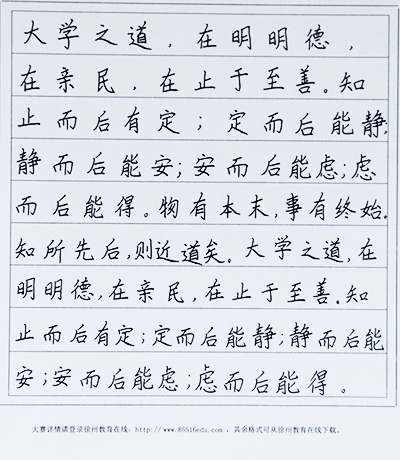 大学之道，在明明德，
在亲民，在止于至善。知
止而后有定；定而后能静；
静而后能安；安而后能虑；虑
而后能得。物有本末，事有终始。
知所先后，则近道矣。大学之道，在
明明德，在亲民，在止于至善。知
止而后有定；定而后能静；静而后能
安；安而后能虑；虑而后能得。
大赛详情请登录徐州教育在线：http://www.86516edu.com ，其余格式可从徐州教育在线下载。